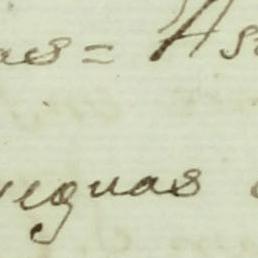 as = As
yeguas